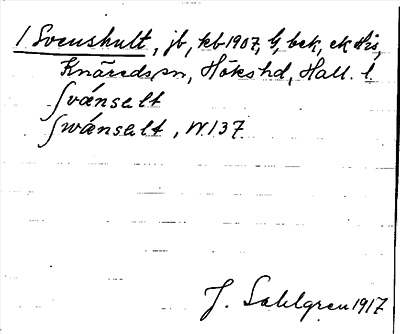 1 Svenshult, jb, kb 1907, G, bek, ek His,
Knäreds sn, Höks hd, Hall. l.
∫vánsalt
∫wánsalt, W137
J. Sahlgren 1917